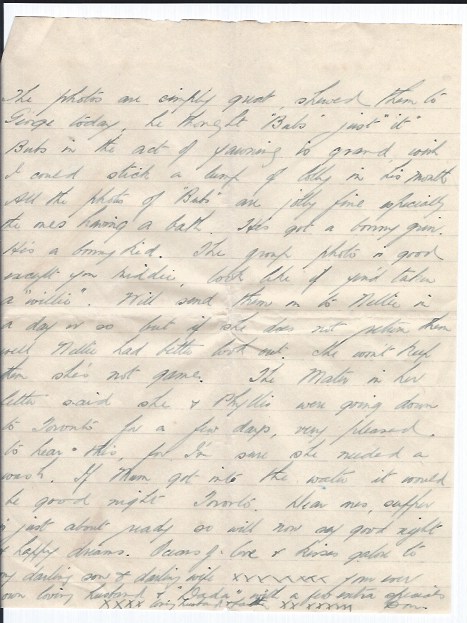 The photos are simply great, shewed them to
George today, he thought "Bubs" just "it"
Bubs in the act of yawning is grand wish
I could stick a lump of in his mouth
All the photos of "Bubs" are jolly fine especially
the ones having a bath. He's got a bonny grin.
He's a bonny kid. The group photo is good
except you kiddie, look like if you'd taken
a "willie". Will send them on to Nellie in
a day or so but if she does not return them
well Nellie had better look out. She won't keep
them she's not game. The Mater in her
letter said she & Phyllis were going down
to Toronto for a few days, very pleased
to hear this for I'm sure she needed a
wash. If Mum got into the water it would
be good night Toronto. Dear ones, supper
is just about ready so will now say good night
& happy dreams. Oceans of love & kisses galore to
my darling son & darling wife xxxxxxxx your ever
own loving husband & "Dada" with a few extra specials
xxxx loving husband & father xx xxxxxx